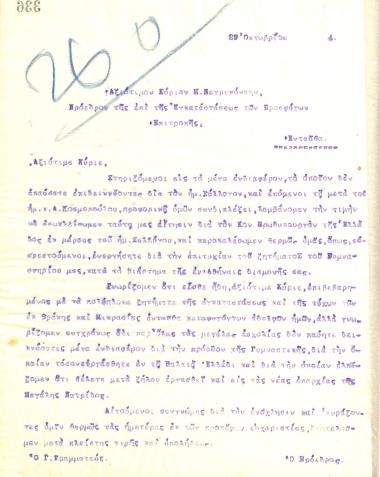 336
260
29 Ὀκτωβρίου 4.
Ἀξιότιμον Κύριον
Πρόεδρον τῆς ἐπὶ τῆς Ἐγκαταστάσεως τῶν Προσφύγων
Ἐπιτροπῆς,
Ἐνταῦθα
Ἀξιότιμε Κύριε,
Στηριζόμενοι εἰς τὸ μέγα ἐνδιαφέρον, τὸ ὁποῖον δὲν
ἐπαύσατε ἐπιδεικνύοντες διὰ τὸν ἡμ. Σύλλογον, καὶ ἑπόμενοι τῇ μετὰ τοῦ
ἡμ. κ. Α. Κοσμοπούλου, προφορικῇ ὑμῶν συνδιαλέξει, λαμβάνομεν τὴν τιμὴν
ταύτῃ μας αἴτησιν διὰ τὸν Κον Πρωθυπουργὸν τῆς Ἑλλά
δος ἐν μέρους τοῦ ἡμ. Συλλόγου, καὶ παρακαλέσωμεν θερμῶς ὑμᾶς, ὅπως, εὐ-
αρεστούμενοι, ἐνεργήσητε διὰ τὴν ἐπιτυχίαν τοῦ ζητήματος τοῦ Γυμνα-
στηρίου μας, κατὰ τὸ διάστημα τῆς ἐν Ἀθήναις διαμονῆς σας.
Γνωρίζομεν ὅτι εἶσθε ἤδη, ἀξιότιμε Κύριε, ἐπιβεβαρη-
μένος μὲ τὰ πολύπλοκα ζητήματα τῆς ἐγκαταστάσεως καὶ τῆς τύχης τῶν
ἐκ Θρᾴκης καὶ Μικρασίας ἐνταῦθα καταφυγόντων ἀδελφῶν ἡμῶν, ἀλλὰ γνω-
ρίζομεν συγχρόνως ὅτι παρ' ὅλας τὰς μεγάλας ἀσχολίας δὲν παύητε δει-
κνύοντες μέγα ἐνδιαφέρον διὰ τὴν πρόοδον τῆς Γυμναστικῆς, διὰ τὴν ὁ-
ποίαν τόσον εἰργάσθητε ἐν τῇ Παλαιᾷ Ἑλλάδι καὶ διὰ τὴν ὁποίαν ἐλπί-
ζομεν ὅτι θέλετε μετὰ ζήλου ἐργασθεῖ καὶ εἰς τὰς νέας ἐπαρχίας τῆς
Μεγάλης Πατρίδος.
Αἰτούμενοι συγγνώμης διὰ τὴν ἐνόχλησιν καὶ ἐκφράζον-
τες ὑμῖν θερμῶς τὰς ἡμετέρας ἐκ τῶν προτέρων εὐχαριστίας, διατελοῦ-
μεν μετὰ πλείστης τιμῆς καὶ ὑπολήψεως.
Ὁ Γ. Γραμματεύς. Ὁ Πρόεδρος.